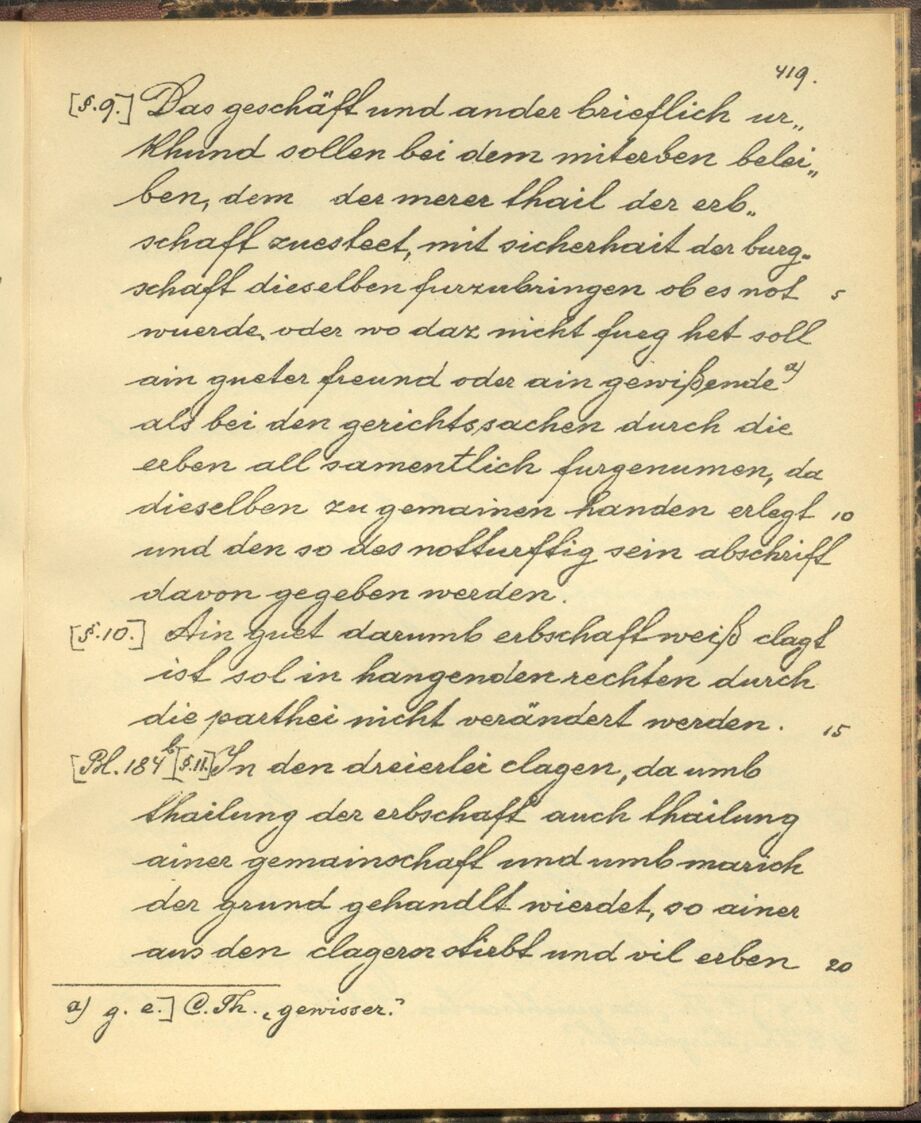 419.
[§.9.] Das geschäft und ander brieflich ur„
khund sollen bei dem miterben belei„
ben, dem der merer thail der erb„
schaft zuesteet, mit sicherhait der burg„
schaft dieselben furzubringen ob es not 5
wuerde. oder wo daz nicht fueg het soll
ain gueter freund oder ain gewißende a)
als bei den gerichtssachen durch die
erben all samentlich furgenumen, da
dieselben zu gemainen handen erlegt 10
und den so des notturftig sein abschrift
davon gegeben werden.
[§.10.] Ain guet darumb erbschaft weiß clagt
ist sol in hangenden rechten durch
die parthei nicht verändert werden. 15
[Bl. 184b] [§.11.] In den dreierlei clagen, da umb
thailung der erbschaft auch thailung
ainer gemainschaft und umb march
der grund gehandlt wierdet, so ainer
aus den clagern stirbt und vil erben 20
a) g. e.] C. Th. „gewisser."